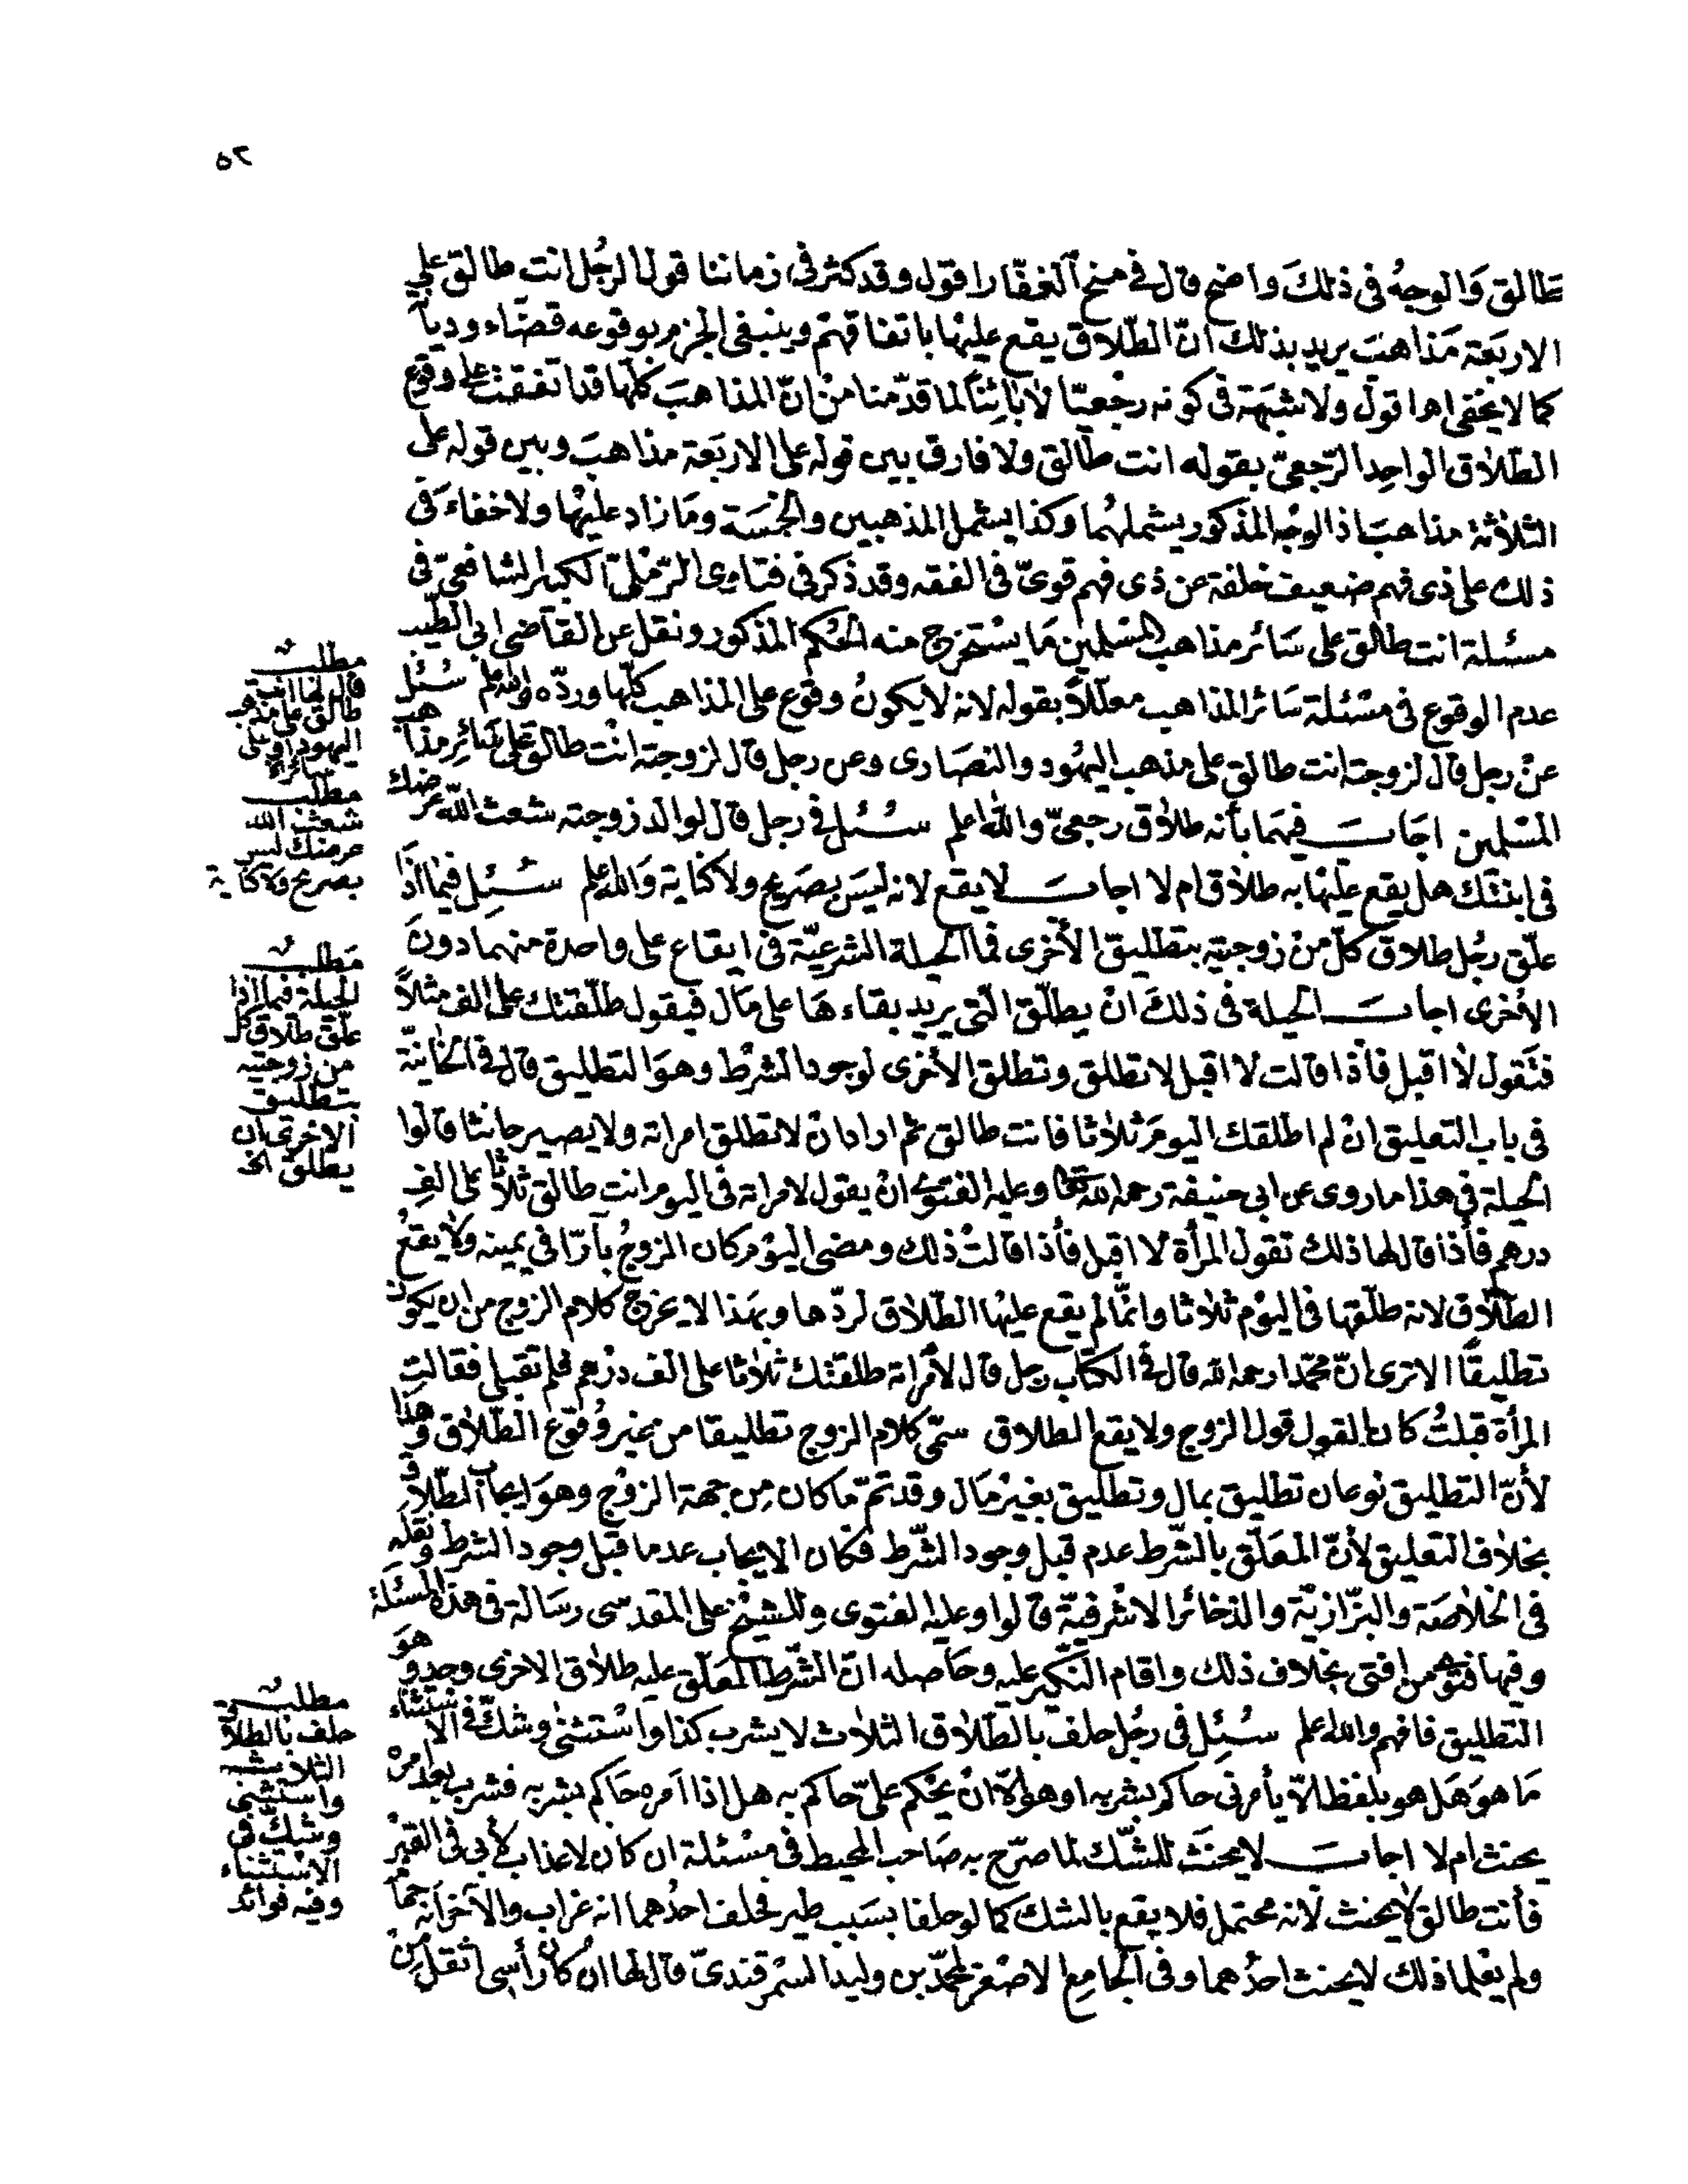 ٥٢
طالق والوجه فى ذلك واضح قال فى منح الغفار اقول وقد كثر فى زماننا قول الرجل انت طالق على
الاربعة مذاهب يريد بذلك ان الطلاق يقع عليها باتفاقهم وينبغى الجزم بوقوعه قضاء وديانة
كما لا يخفى اه اقول ولا شبهة فى كونه رجعيا لا بائنا لما قدمنا من ان المذاهب كلها قد اتفقت على وقوع
الطلاق الواحد الرجعى بقوله انت طالق ولا فارق بين قوله على الاربعة مذاهب وبين قوله على
الثلاثة مذاهب اذ الوجه المذكور يشملهما وكذا يشمل المذهبين والخمسة وما زاد عليها ولا خفاء فى
ذلك على ذى فهم ضعيف خلفة عن ذى فهم قوى فى الفقه وقد ذكر فى فتاوى الرملى الكبير الشافعى فى
مسئلة انت طالق على سائر مذاهب المسلمين ما يستخرج منه الحكم المذكور ونقل عن القاضى ابى الطيب
عدم الوقوع فى مسئلة سائر المذاهب معللا بقوله لانه لا يكون وقوع على المذاهب كلها ورده والله اعلم سئل
عن رجل قال لزوجته انت طالق على مذهب اليهود والنصارى وعن رجل قال لزوجته انت طالق على سائر مذاهب
المسلمين اجاب فيهما بأنه طلاق رجعى والله اعلم سئل فى رجل قال لوالد زوجته شعث الله عرضك
فى ابنتك هل يقع عليها به طلاق ام لا اجاب لا يقع لانه ليس بصريح ولا كناية والله اعلم سئل فيما اذا
علق رجل طلاق كل من زوجتيه بتطليق الأخرى فما الحيلة الشرعية فى ايقاع على واحدة منهما دون
الأخرى اجاب الحيلة فى ذلك ان يطلق التى يريد بقاءها على مال فيقول طلقتك على الف مثلا
فتقول لا اقبل فأذا قالت لا اقبل لا تطلق وتطلق الأخرى لوجود الشرط وهو التطليق قال فى الخانية
فى باب التعليق ان لم اطلقك اليوم ثلاثا فانت طالق ثم اراد ان لا تطلق امراته ولا يصير حانثا قالوا
الحيلة فى هذا ما روى عن ابى حنيفة رحمه الله تعالى وعليه الفتوى ان يقول لامراته فى اليوم انت طالق ثلاثا على الف
درهم فأذا قال لها ذلك تقول المرأة لا اقبل فأذا قالت ذلك ومضى اليوم كان الزوج بارا فى يمينه ولا يقع
الطلاق لانه طلقها فى اليوم ثلاثا وانما لم يقع عليها الطلاق لردها وبهذا لا يخرج كلام الزوج من ان يكون
تطليقا الا ترى ان محمدا رحمه الله قال فى الكتاب رجل قال لأمراته طلقتك ثلاثا على الف درهم فلم تقبلى فقالت
المرأة قبلت كان القول قول الزوج ولا يقع الطلاق سمى كلام الزوج تطليقا من غير وقوع الطلاق وهذا
لأن التطليق نوعان تطليق بمال وتطليق بغير مال وقد تم ما كان من جهة الزوج وهو ايجاب الطلاق
بخلاف التعليق لأن المعلق بالشرط عدم قبل وجود الشرط فكان الايجاب عدما قبل وجود الشرط ونقله
فى الخلاصة والبزازية والذخائر الاشرفية قالوا وعليه الفتوى وللشيخ على المقدسى رسالة فى هذه المسئلة
وفيها فتوى من افتى بخلاف ذلك واقام النكير عليه وحاصله ان الشرط المعلق عليه طلاق الاخرى وجد وهو
التطليق فافهم والله اعلم سئل فى رجل حلف بالطلاق الثلاث لا يشرب كذا واستثنى وشك فى الاستثناء
ما هو هل هو بلفظ الا يأمرنى حاكم بشربه او هو الا ان يحكم على حاكم به هل اذا امره حاكم بشربه فشرب بعد امره
يحنث ام لا اجاب لا يحنث للشك لما صرح به صاحب المحيط فى مسئلة ان كان لا عذاب لأبى فى القبر
فأنت طالق لا يحنث لانه محتمل فلا يقع بالشك كما لو حلفا بسبب طير فحلف احدهما انه غراب والآخر انه حمام
ولم يعلما ذلك لا يحنث احدهما وفى الجامع الاصغر لمحمد بن وليد السمرقندى قال لها ان كان رأسى اثقل من
مطلب
قال لها انت
طالق على مذهب
اليهود او على
سائر الخ
مطلب
شعث الله
عرضك ليس
بصريح ولا كناية
مطلب
الحيلة فيما اذا
علق طلاق كل
من زوجتيه
بتطليق
الاخرى ان
يطلق الخ
مطلب
حلف بالطلاق
الثلاث
واستثنى
وشك فى
الاستثناء
وفيه فوائد